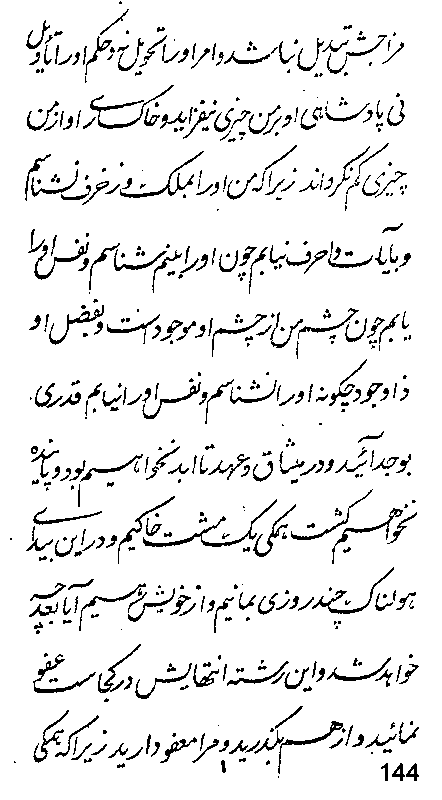 مزاجش تبدیل نباشد و امر او را تحویل نه و حکم او را تأویل
نی پادشاهی او بر من چیزی نیفزاید و خاکساری او از من
چیزی کم نگرداند زیرا که من او را بملک و زخرف نشناسم
و بآیات و احرف نیابم چون او را بینم شناسم و نفس او را
یابم چون چشم من از چشم او موجود است و بفضل او
ذا وجود چگونه او را نشناسم و نفس او را نیابم قدری
بوجد آئید و در میثاق و عهد تا ابد نخواهیم بود و پاینده
نخواهیم گشت همگی یک مشت خاکیم و در این بیدای
هولناک چند روزی بمانیم و از خویش هسیم آیا بعد چه
خواهد شد و این رشته انتهایش در کجاست عفو
نمائید و از هم بگذرید و مرا معفو دارید زیرا که همگی
144